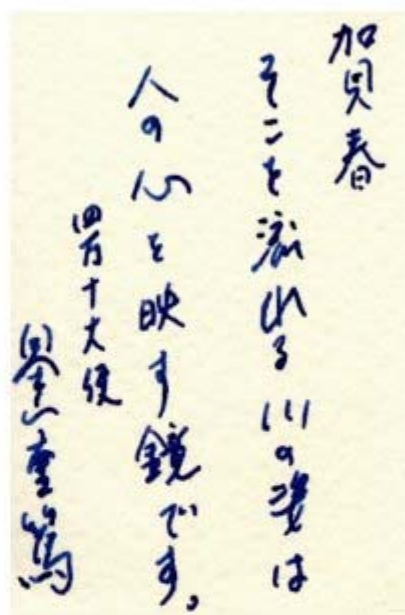 賀春
そこを流れる川の姿は
人の心を映す鏡です。
四万十大使
畠山重篤